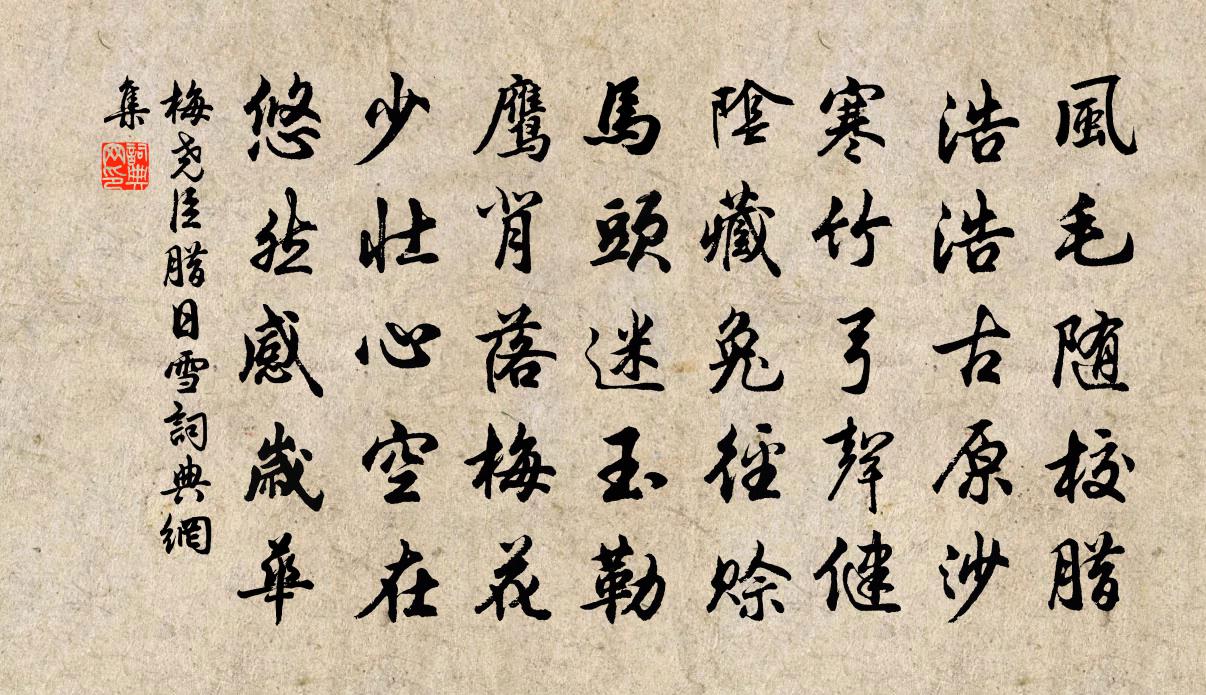 風毛随校腊
浩浩古原沙
寒竹弓聲健
陰藏兔徑赊
馬頭迷玉勒
鷹背落梅花
少壯心空在
悠然感歲華
梅堯臣腊日雪詞典網
集
詞典
网印